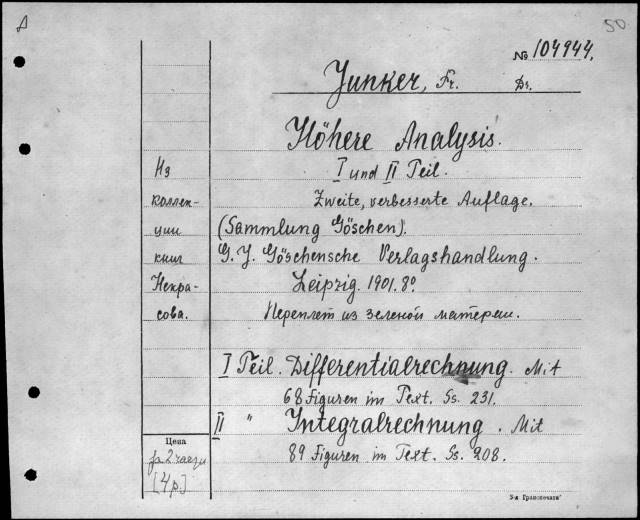 50
№ 104944.
Junker, Fr. Dr.
Höhere Analysis.
I und II Teil.
Zweite, verbesserte Auflage.
(Sammlung Göschen).
G. J. Göschensche Verlagshandlung.
Leipzig. 1901. 8º
Переплет из зеленой материи.
Из
коллек-
ции
книг
Некра-
сова.
I Teil. Differentialrechnung. Mit
68 Figuren im Text. Ss. 231.
II " Integralrechnung. Mit
89 Figuren im Text. Ss. 208.
Цена
за 2 части
[4 р.]